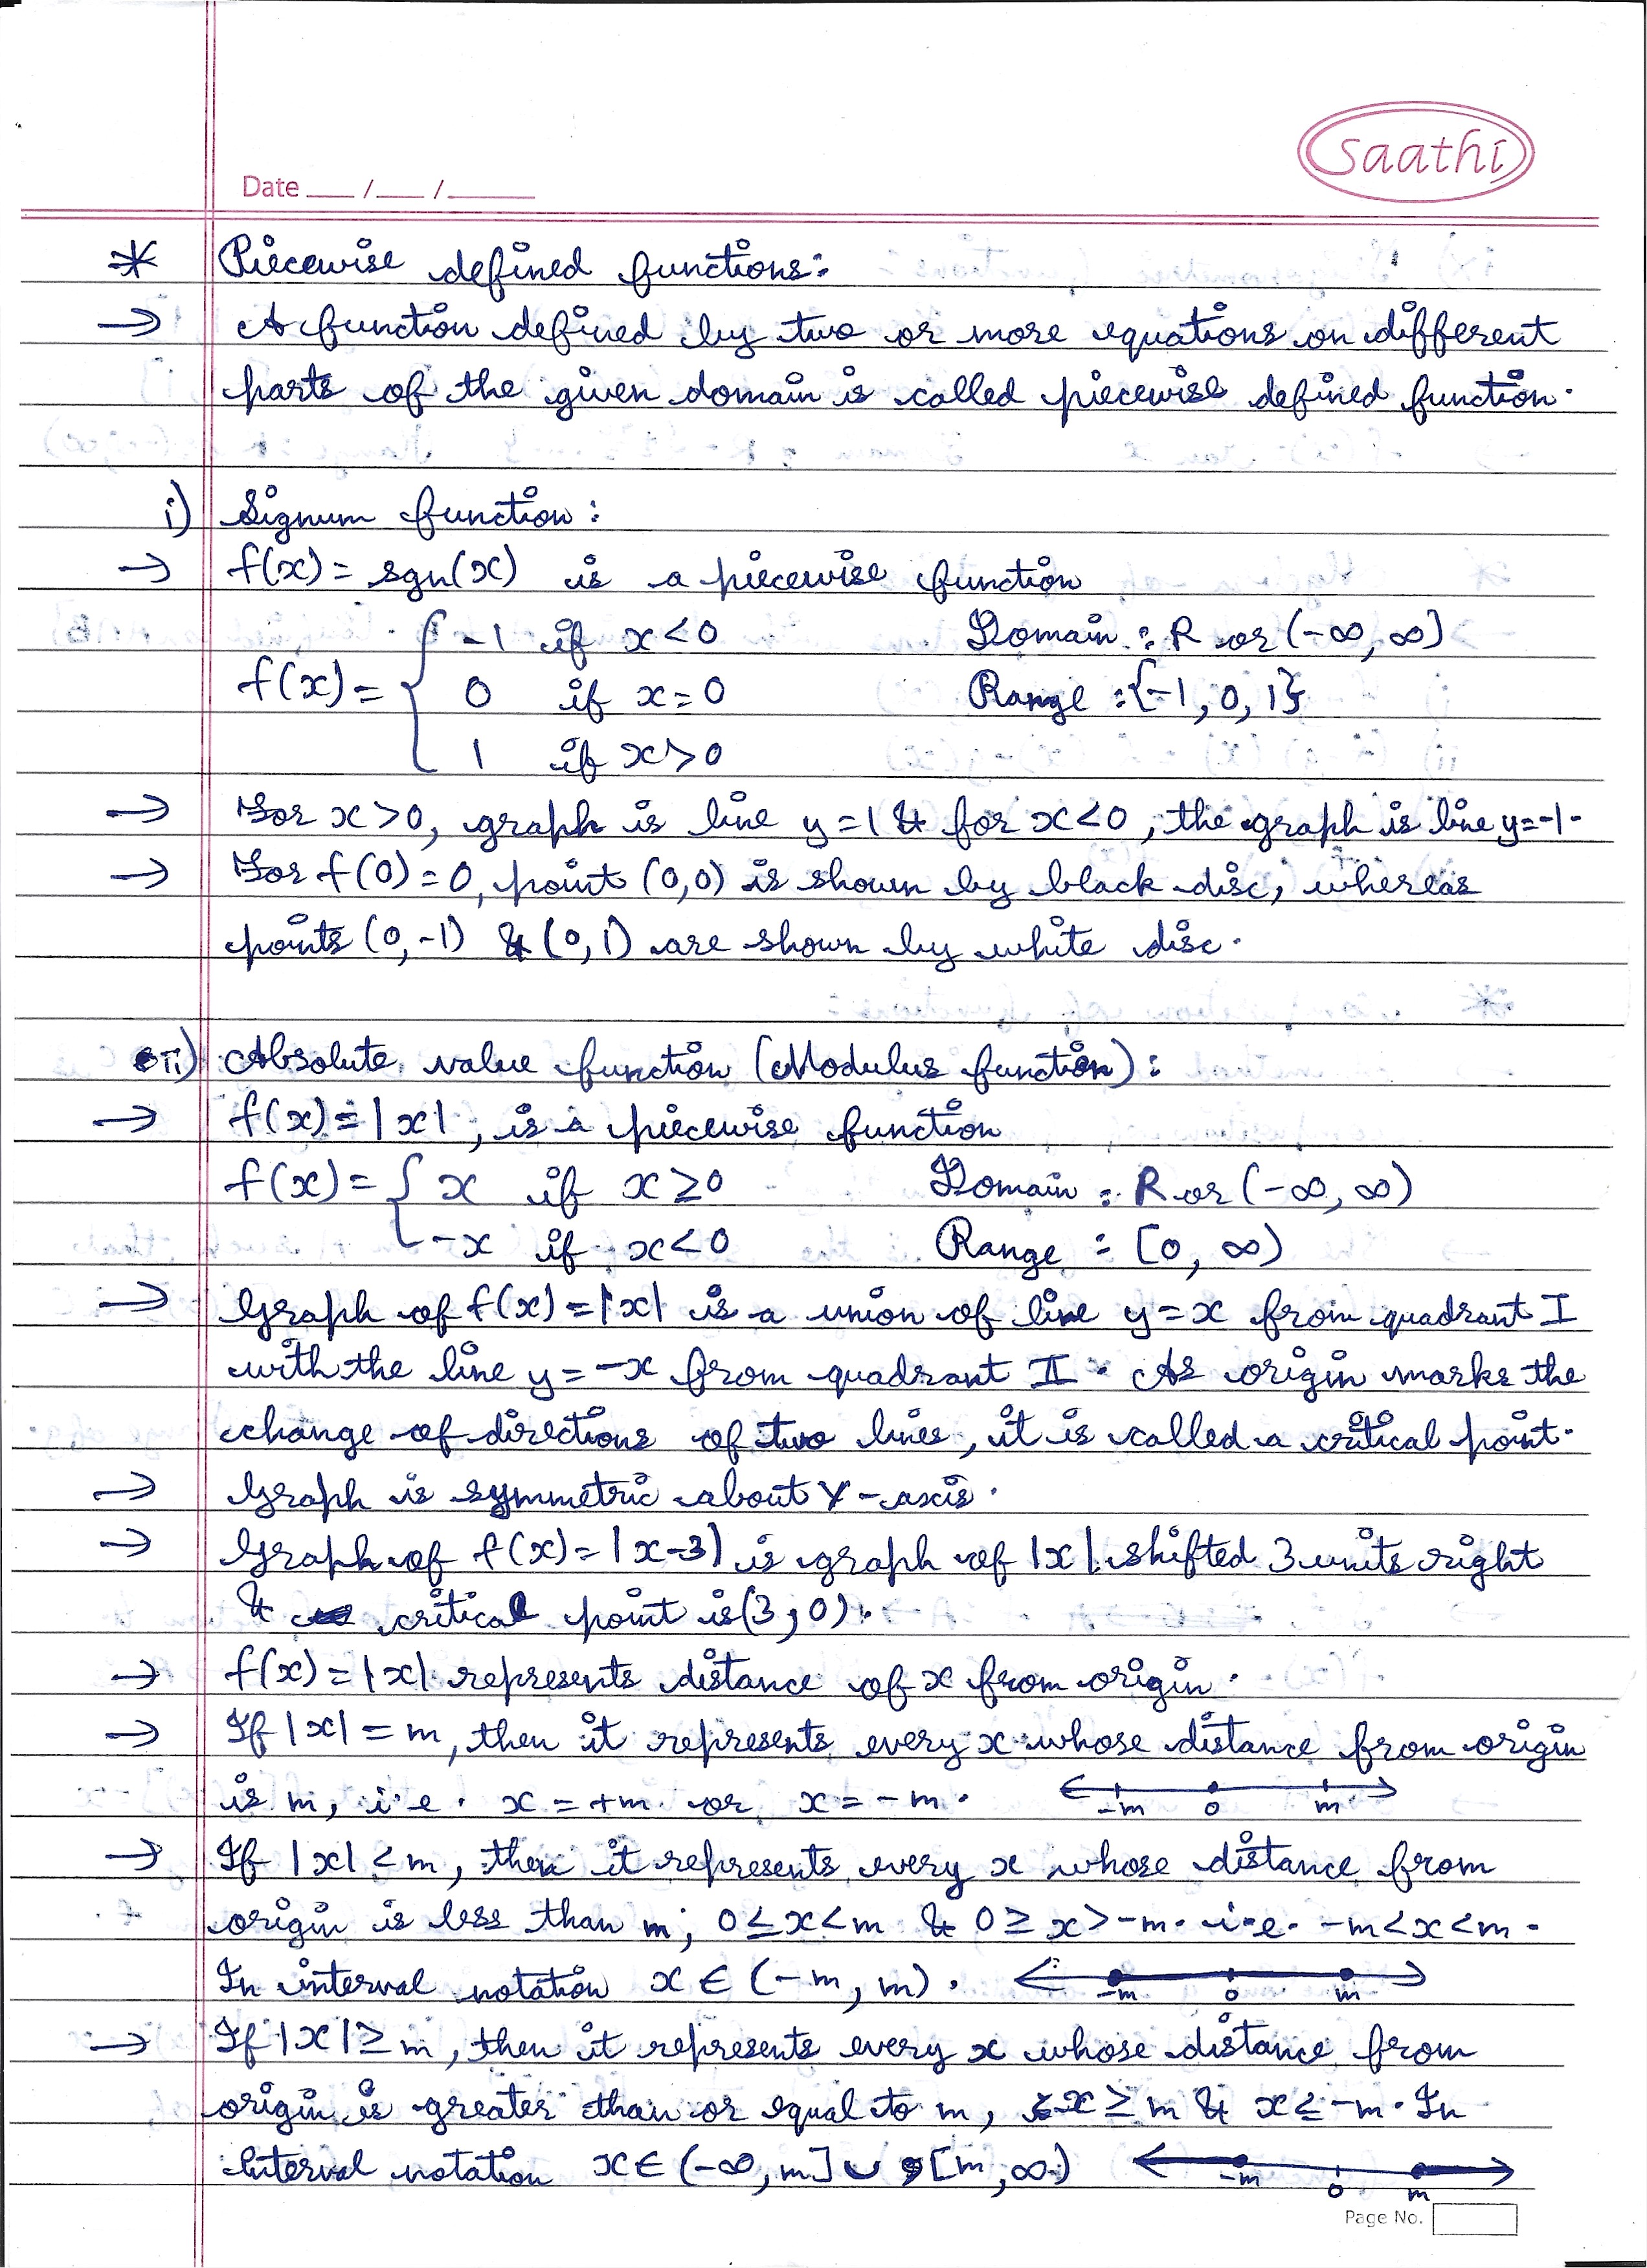 Saathi
Date ___ / ___ / _____
* Piecewise defined functions:
→ A function defined by two or more equations on different
parts of the given domain is called piecewise defined function.
i) Signum function:
→ f(x) = sgn(x) is a piecewise function
-1 if x<0 Domain : R or (-∞, ∞)
f(x) = { 0 if x=0 Range : {-1, 0, 1}
1 if x>0
→ For x>0, graph is line y=1 & for x<0, the graph is line y=-1.
→ For f(0)=0, point (0,0) is shown by black disc, whereas
points (0,-1) & (0,1) are shown by white disc.
ii) Absolute value function (Modulus function):
→ f(x)=|x|, is a piecewise function
f(x) = { x if x≥0 Domain : R or (-∞, ∞)
-x if x<0 Range : [0, ∞)
→ Graph of f(x)=|x| is a union of line y=x from quadrant I
with the line y=-x from quadrant II. As origin marks the
change of directions of two lines, it is called a critical point.
→ Graph is symmetric about Y-axis.
→ Graph of f(x)=|x-3| is graph of |x| shifted 3 units right
& critical point is (3,0).
→ f(x)=|x| represents distance of x from origin.
→ If |x|=m, then it represents every x whose distance from origin
is m, i.e. x=+m or x=-m. -m 0 m
→ If |x|<m, then it represents every x whose distance from
origin is less than m, 0≤x<m & 0≥x>-m. i.e. -m<x<m.
In interval notation x∈(-m, m). -m 0 m
→ If |x|≥m, then it represents every x whose distance from
origin is greater than or equal to m, x≥m & x≤-m. In
interval notation x∈(-∞, m]∪[m, ∞) -m 0 m
Page No.